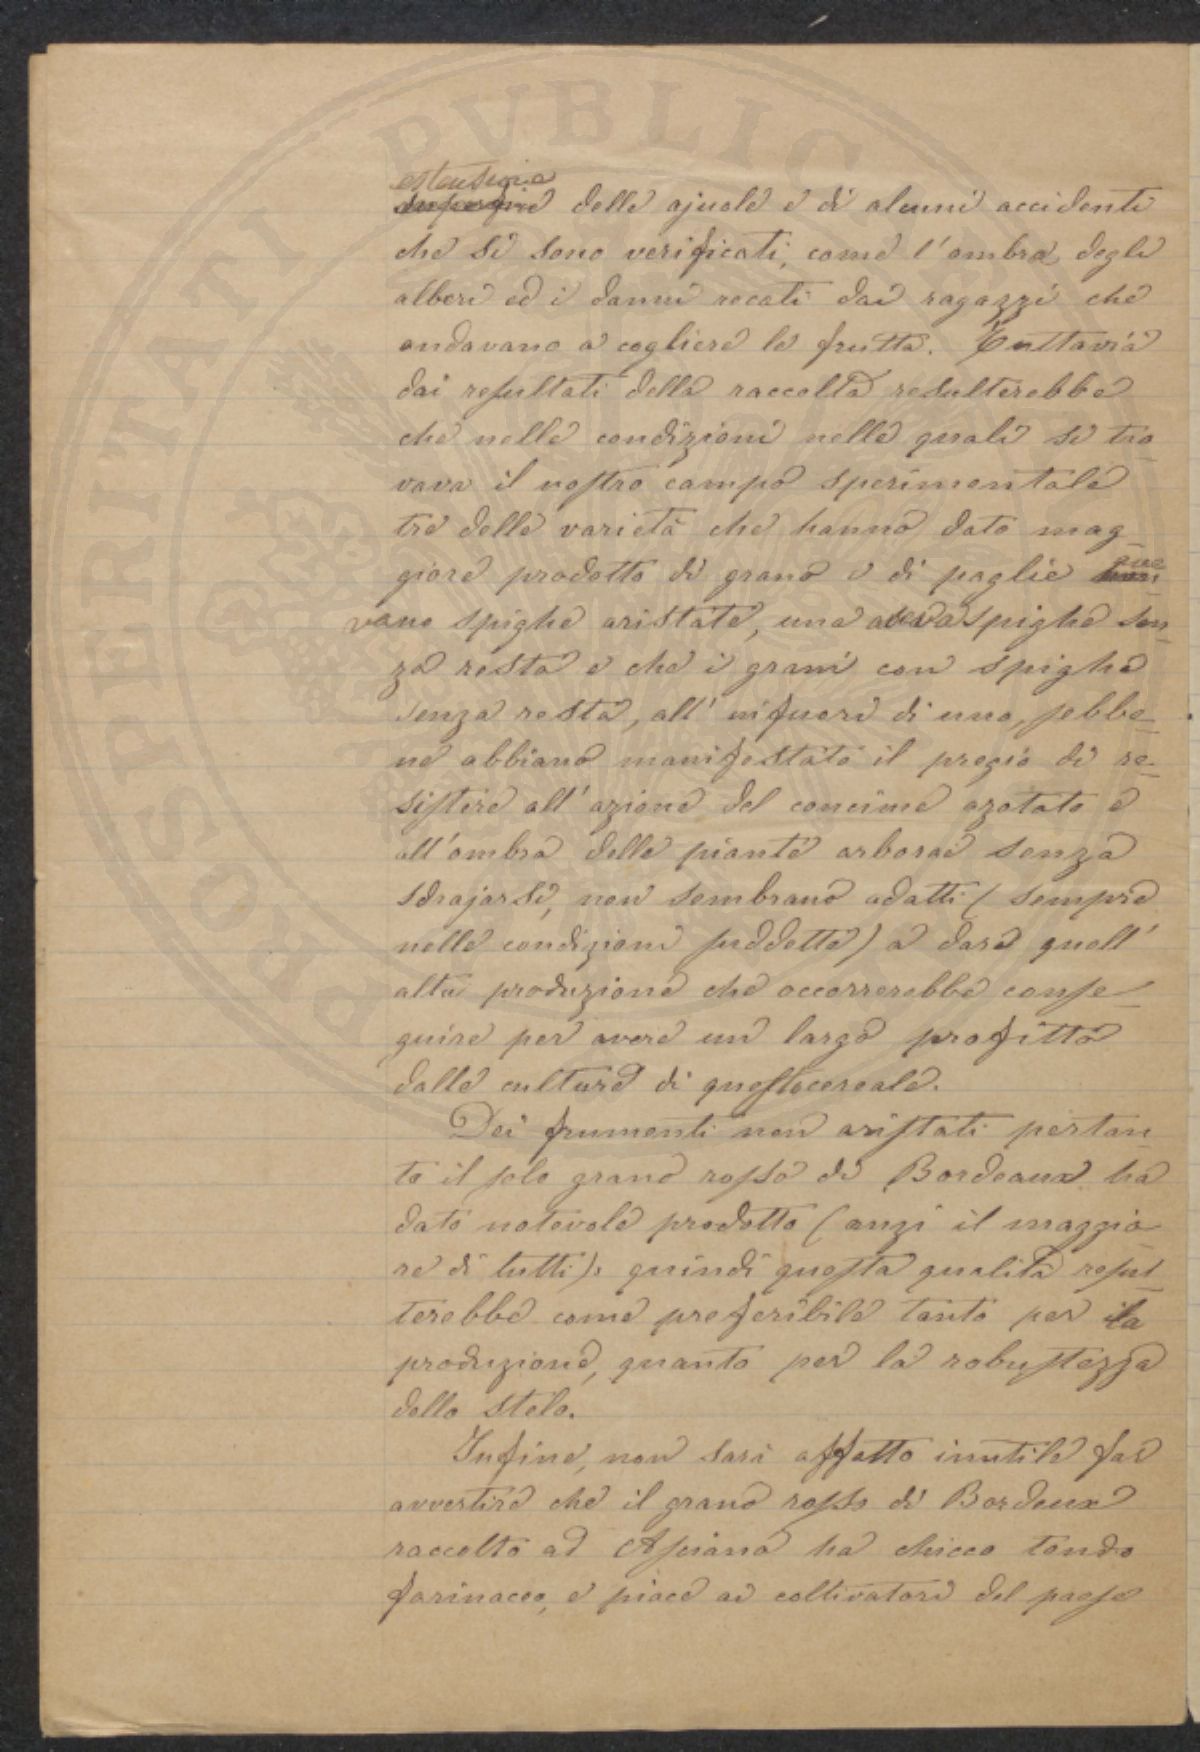 PROSPERITATI PVBLICAE
estensione
superficie delle ajuole e di alcuni accidenti
che si sono verificati, come l'ombra degli
alberi ed i danni recati dai ragazzi che
andavano a cogliere le frutta. Tuttavia
dai resultati della raccolta resulterebbe
che nelle condizioni nelle quali si tro
vava il nostro campo sperimentale
tre delle varietà che hanno dato mag
giore prodotto di grano e di paglie
vano spighe aristate, una aveva spighe sen
za resta e che i grani con spighe
senza resta, all'infuori di uno, sebbe
ne abbiano manifestato il pregio di re
sistere all'azione del concime azotato e
all'ombra delle piante arboree senza
sdrajarsi, non sembrano adatti (sempre
nelle condizioni suddette) a dare quell'
alta produzione che occorrerebbe conse
guire per avere un largo profitto
dalle culture di questo cereale.
Dei frumenti non aristati pertan
to il solo grano rosso di Bordeaux ha
dato notevole prodotto (anzi il maggio
re di tutti): quindi questa qualità resul
terebbe come preferibile tanto per la
produzione, quanto per la robustezza
dello stelo.
Infine, non sarà affatto inutile far
avvertire che il grano rosso di Bordeux
raccolto ad Asciano ha chicco tondo
farinaceo, e piace ai coltivatori del paese